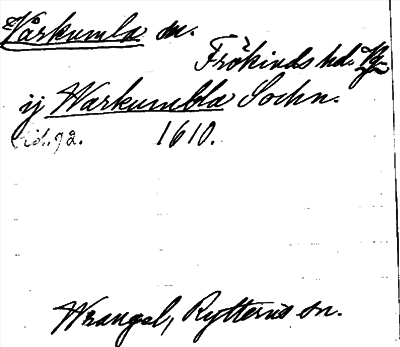 Vårkumla sn.
Frökinds hd. Vg.
ij Warkumbla Sochn.
1610.
Wrangel, Rytterns sn.